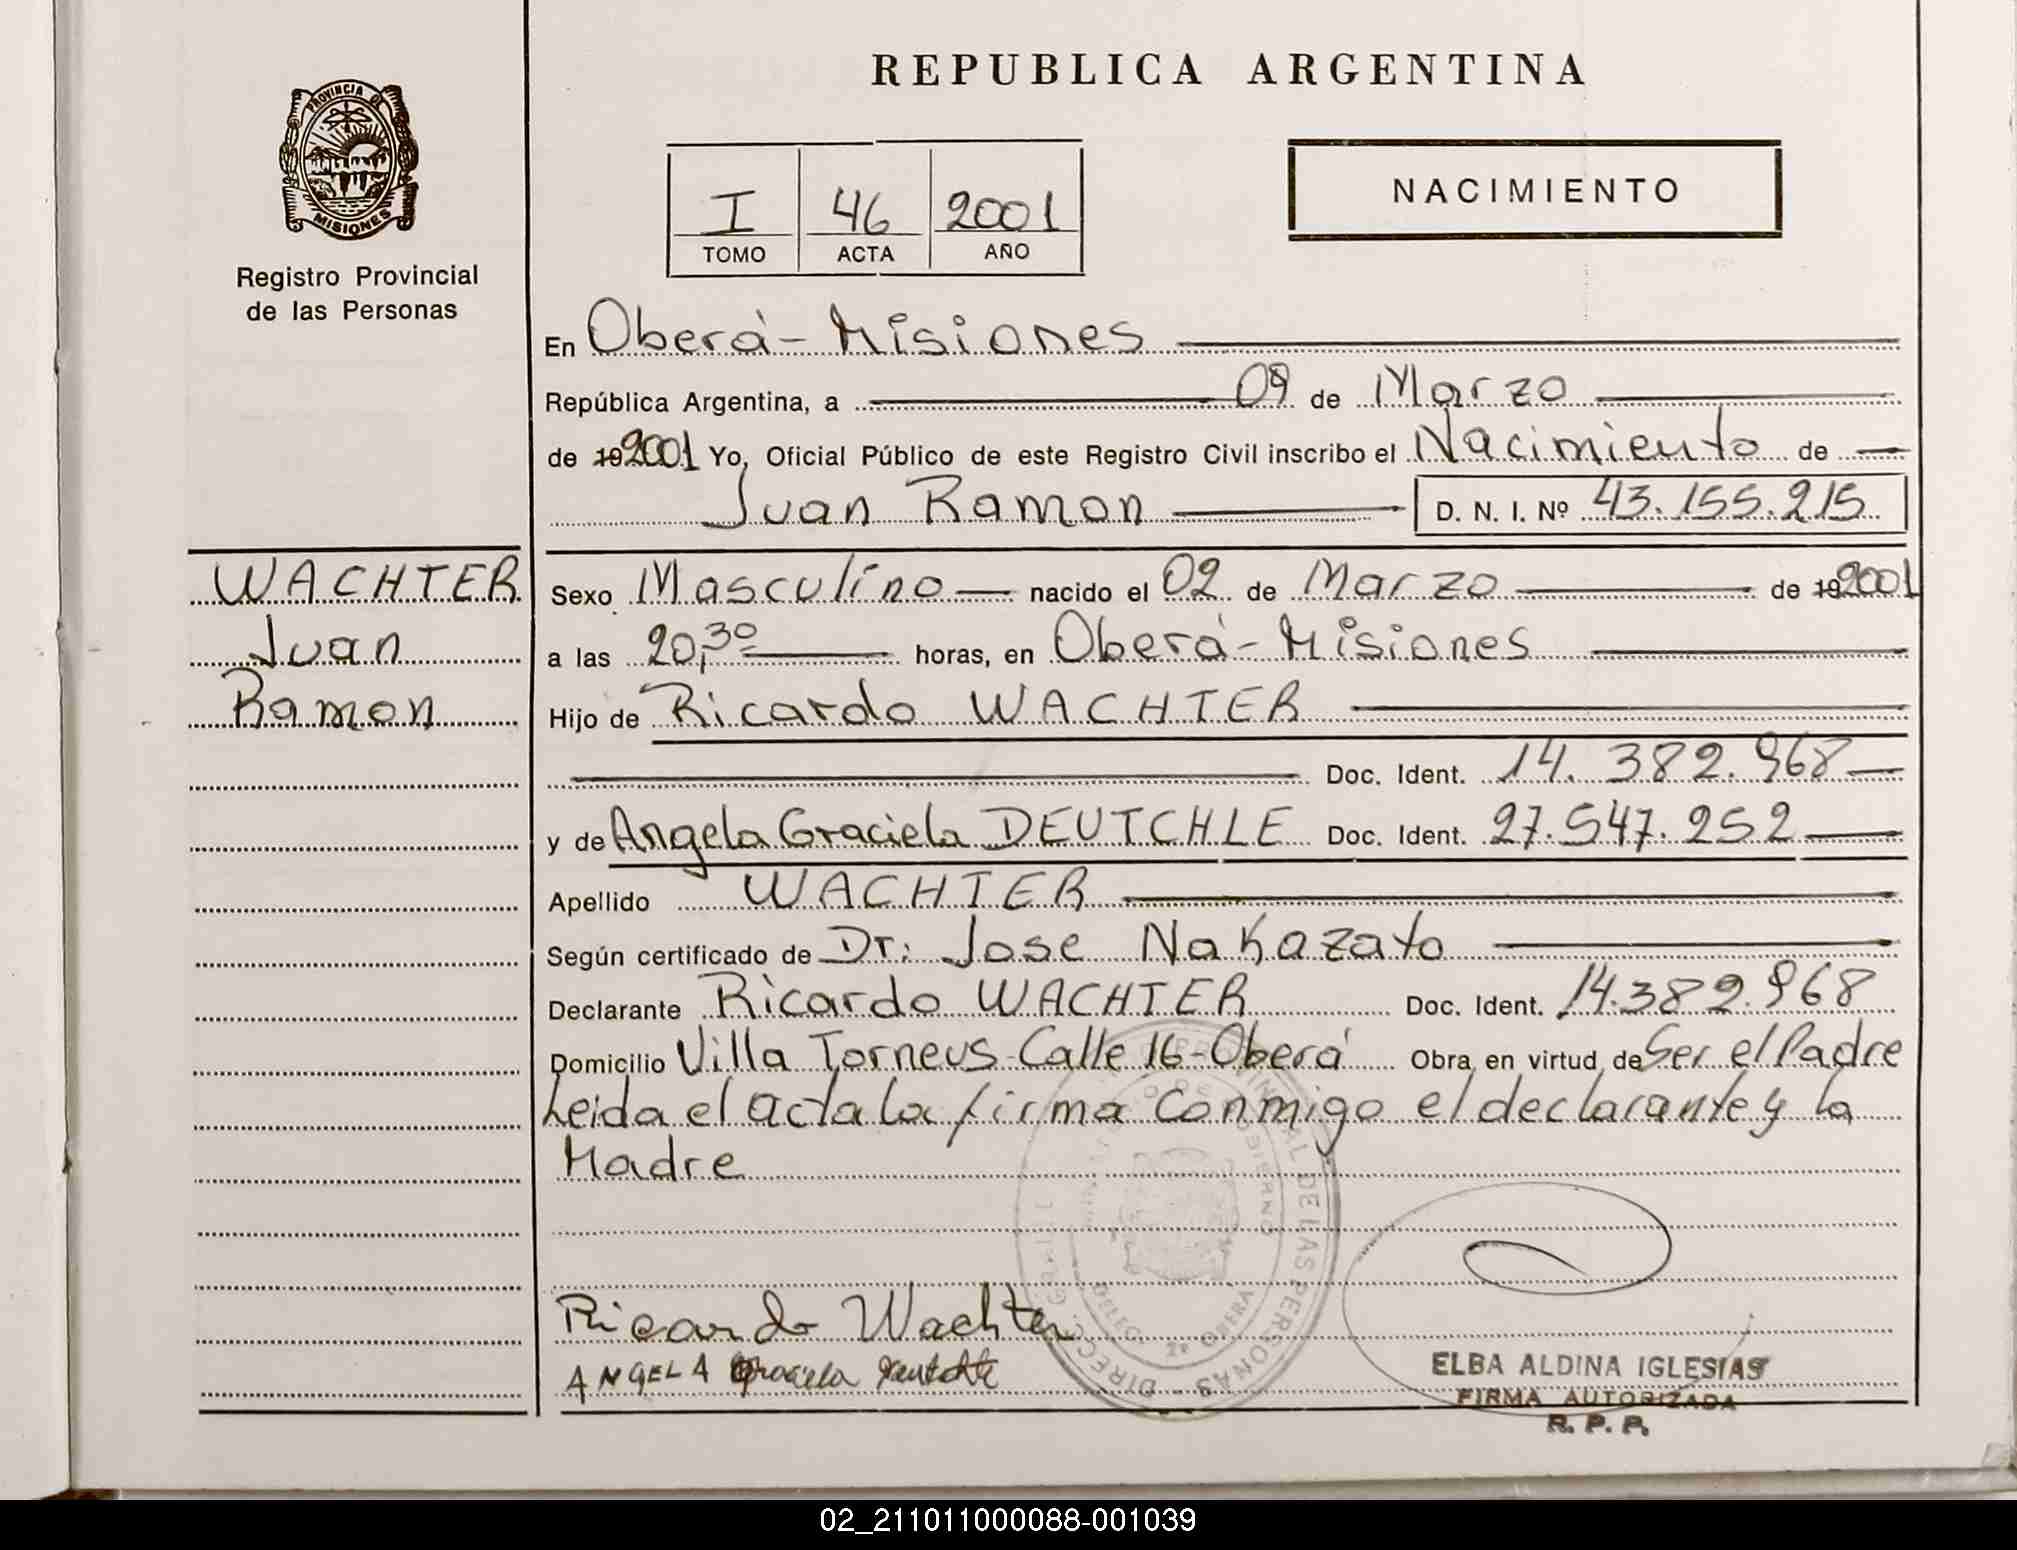 REPUBLICA ARGENTINA
PROVINCIA DE
MISIONES
Registro Provincial
de las Personas
I 46 2001
TOMO ACTA AÑO
NACIMIENTO
En Oberá - Misiones
República Argentina, a 09 de Marzo
de 192001 Yo, Oficial Público de este Registro Civil inscribo el Nacimiento de
Juan Ramon D. N. I. Nº 43.155.215
WACHTER
Juan
Ramon
Sexo Masculino nacido el 02 de Marzo de 192001
a las 20,30 horas, en Oberá - Misiones
Hijo de Ricardo WACHTER
Doc. Ident. 14.382.968
y de Angela Graciela DEUTCHLE Doc. Ident. 27.547.252
Apellido WACHTER
Según certificado de Dr: Jose Nakazato
Declarante Ricardo WACHTER Doc. Ident. 14.382.968
Domicilio Villa Torneus - Calle 16 - Oberá Obra en virtud de Ser el Padre
Leida el acta la firma conmigo el declarante y la
Madre
Ricardo Wachter
ANGELA Graciela
ELBA ALDINA IGLESIAS
FIRMA AUTORIZADA
R. P. P.
02_211011000088-001039